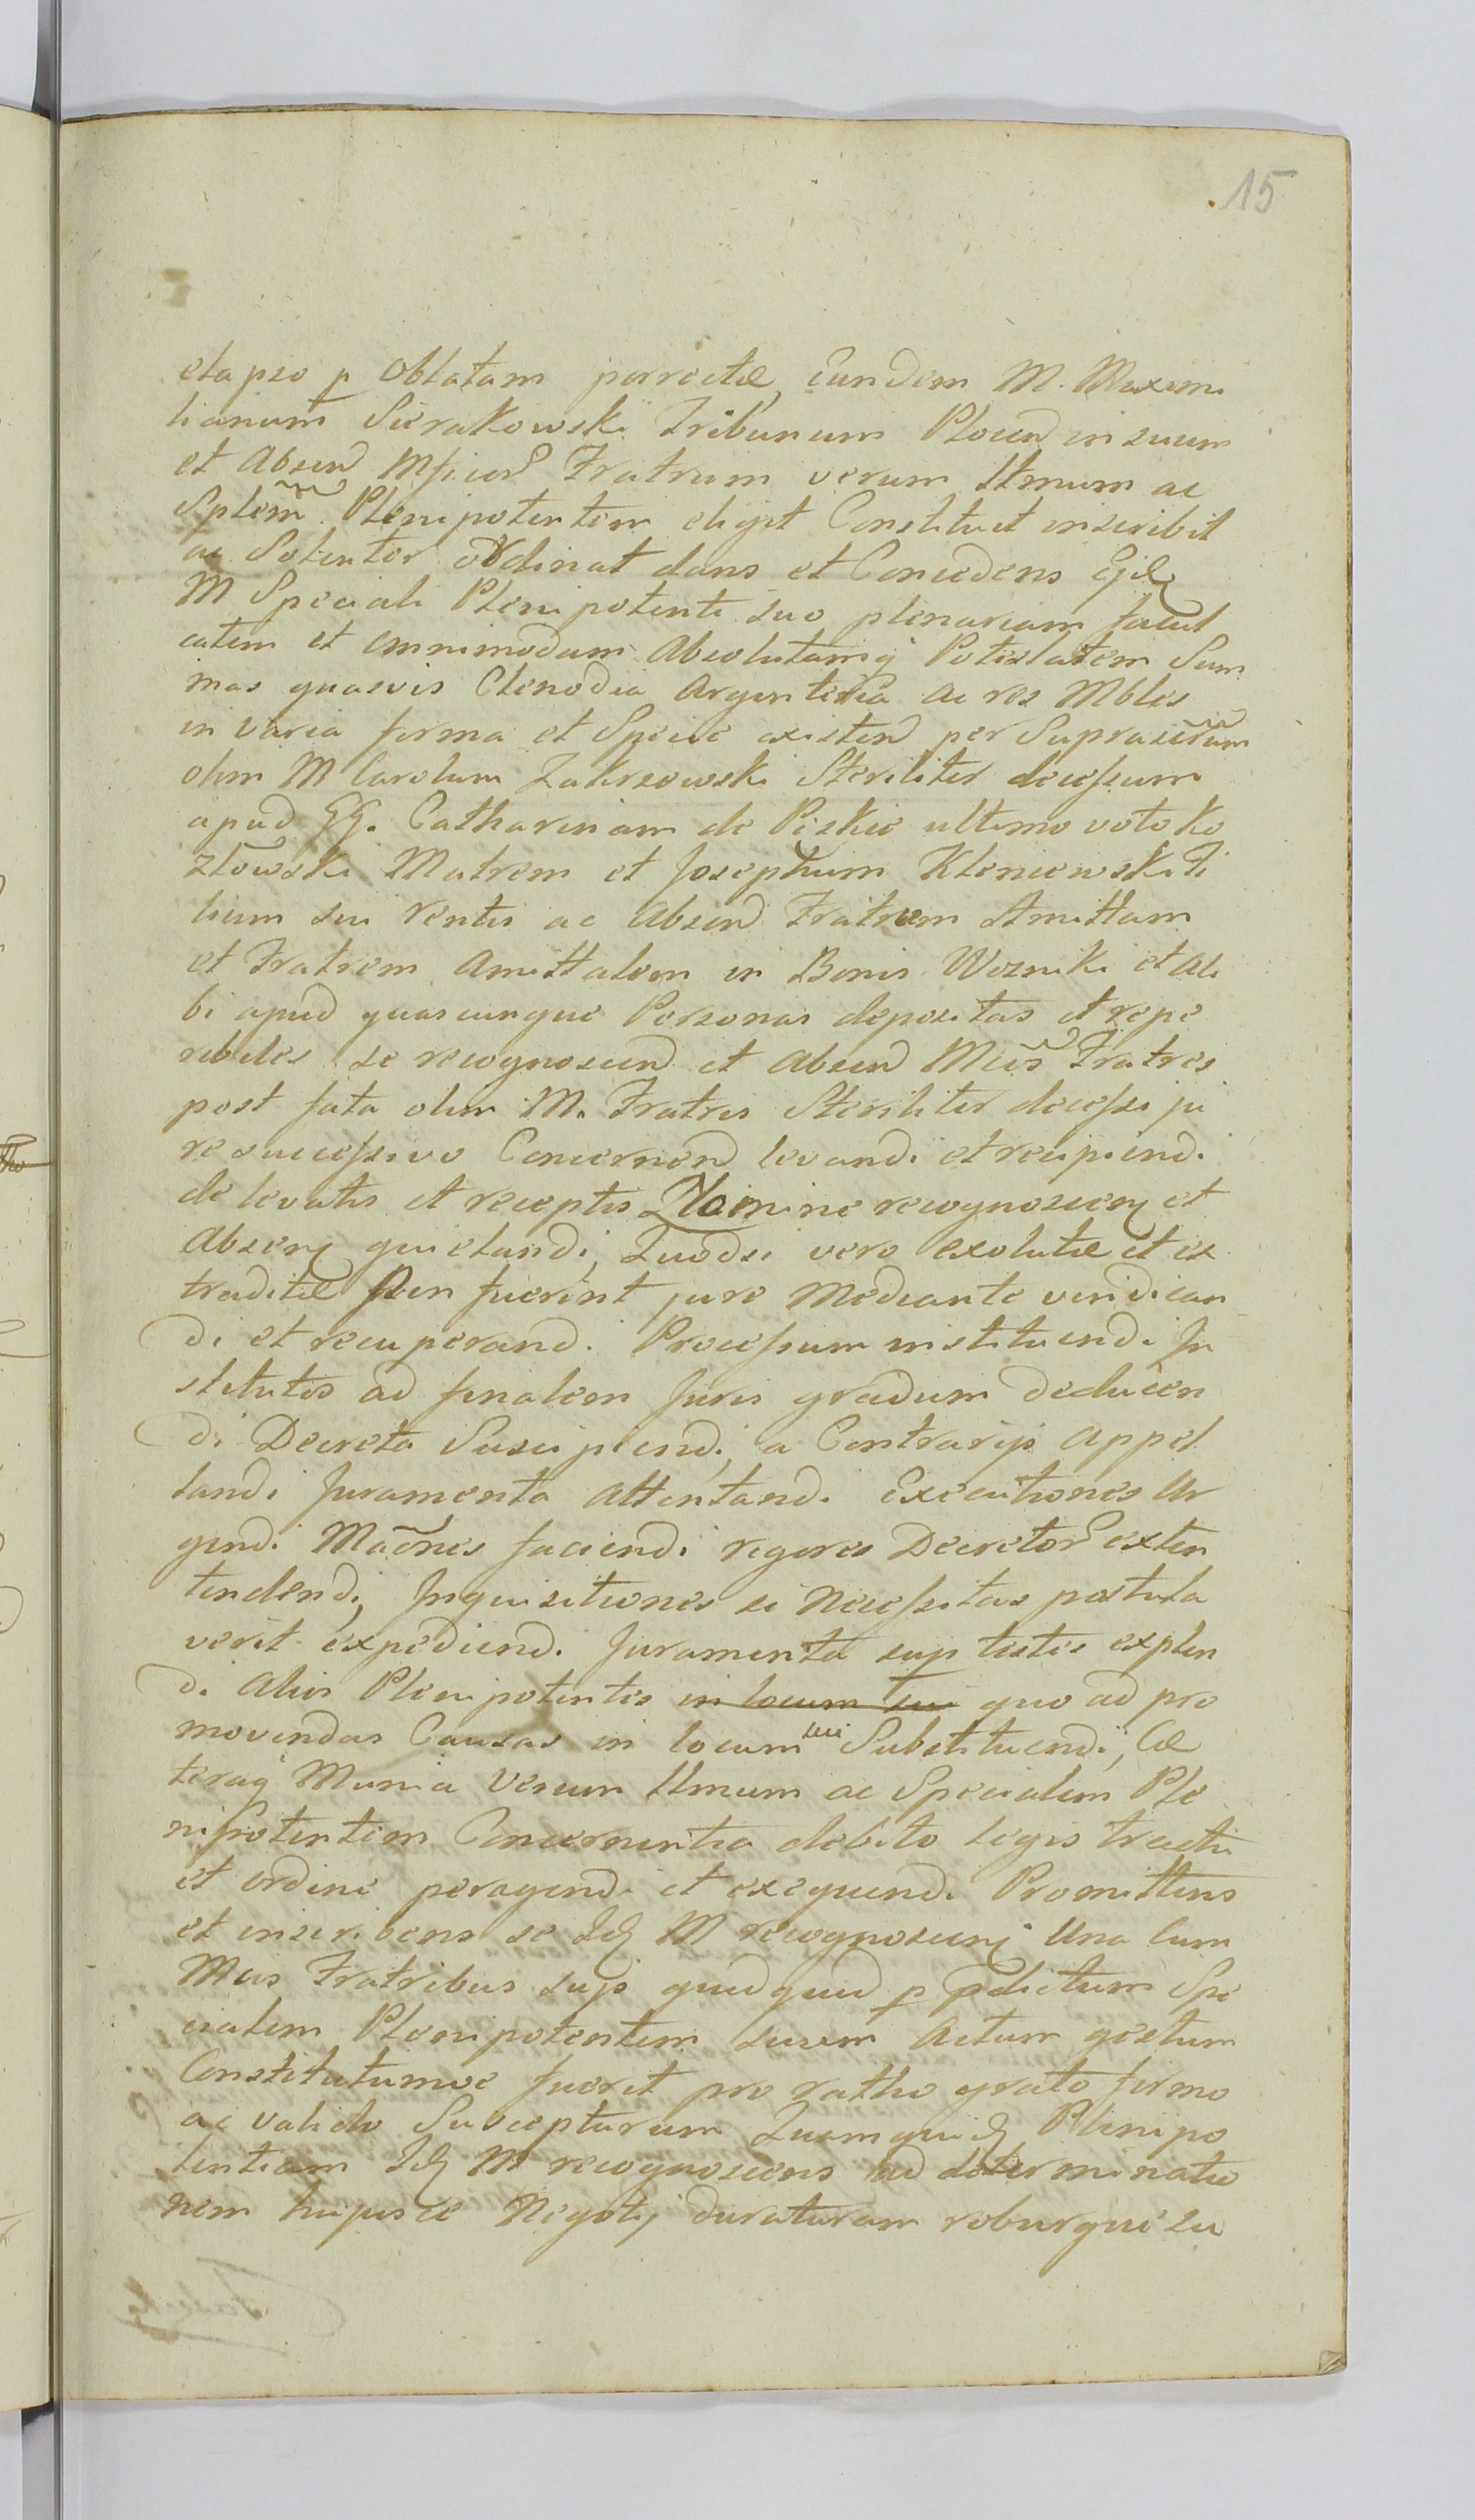 15
elapso p Oblatam porrectæ, Eundem M. Maximi
lianum Sierakowski Tribunum Plocen in suum
et Absen Mficor Fratrum verum ltmum ac
Splem Plenipotentem eligit Constituit inscribit
ac Solenter ordinat dans et Concedens Ejdem
M Speciali Plenipotenti suo plenariam facul
tatem et omnimodam Absolutamq Potestatem Sum
mas quasvis Clenodia Argenteria ac res Mbles
in varia forma et Specie existen per Suprascrum
olim M Carolum Zakrzowski Steriliter decessum
apud GG. Catharinam de Piskie ultimo voto Ko
złowski Matrem et Josephum Kleniewski Fi
lium sui rentis ac Absen Fratrum Amittam
et Fratrem Amittalem in Bonis Wozniki et Ali
bi apud quascunque Personas depositas et repe
ribiles se recognoscen et Absen Mcos Fratres
post fata olim M. Fratris Steriliter decessi ju
re successivo Concernen levandi et recipiendi
de levatis et receptis Nomine recognoscen et
Absen quietandi, Quodsi vero exolutæ et ex
traditæ non fuerint jure Mediante vindican
di et recuperand. Processum instituendi In
stitutos ad finalem Juris gradum deducen
di Decreta Suscipiendi, a Contrarijs Appel
landi Juramenta Attentandi Executiones Ur
gendi Maones faciendi rigores Decretor exten
tendendi, Inquisitiones si Necessitas postula
verit expediendi Juramenta sup testes explen
di Alios Plenipotentes in locum sui quo ad pro
movendas Causas in locum sui Substituendi, Cæ
teraq Munia Verum ltmum ac Specialem Ple
nipotentem Concernentia debito Legis tractu
et ordine peragendi et exequendi Promittens
et inscribens se Id M recognoscens Una Cum
Mcis Fratribus sujs quidquid p pdictum Spe
cialem Plenipotentem suum Actum gestum
Constitutumve fuerit pro ratho grato firmo
ac valido Suscepturum Quamquid Plenipo
tentiam Id M recognoscens ad determinatio
nem hujusce Negotij duraturam roburque su